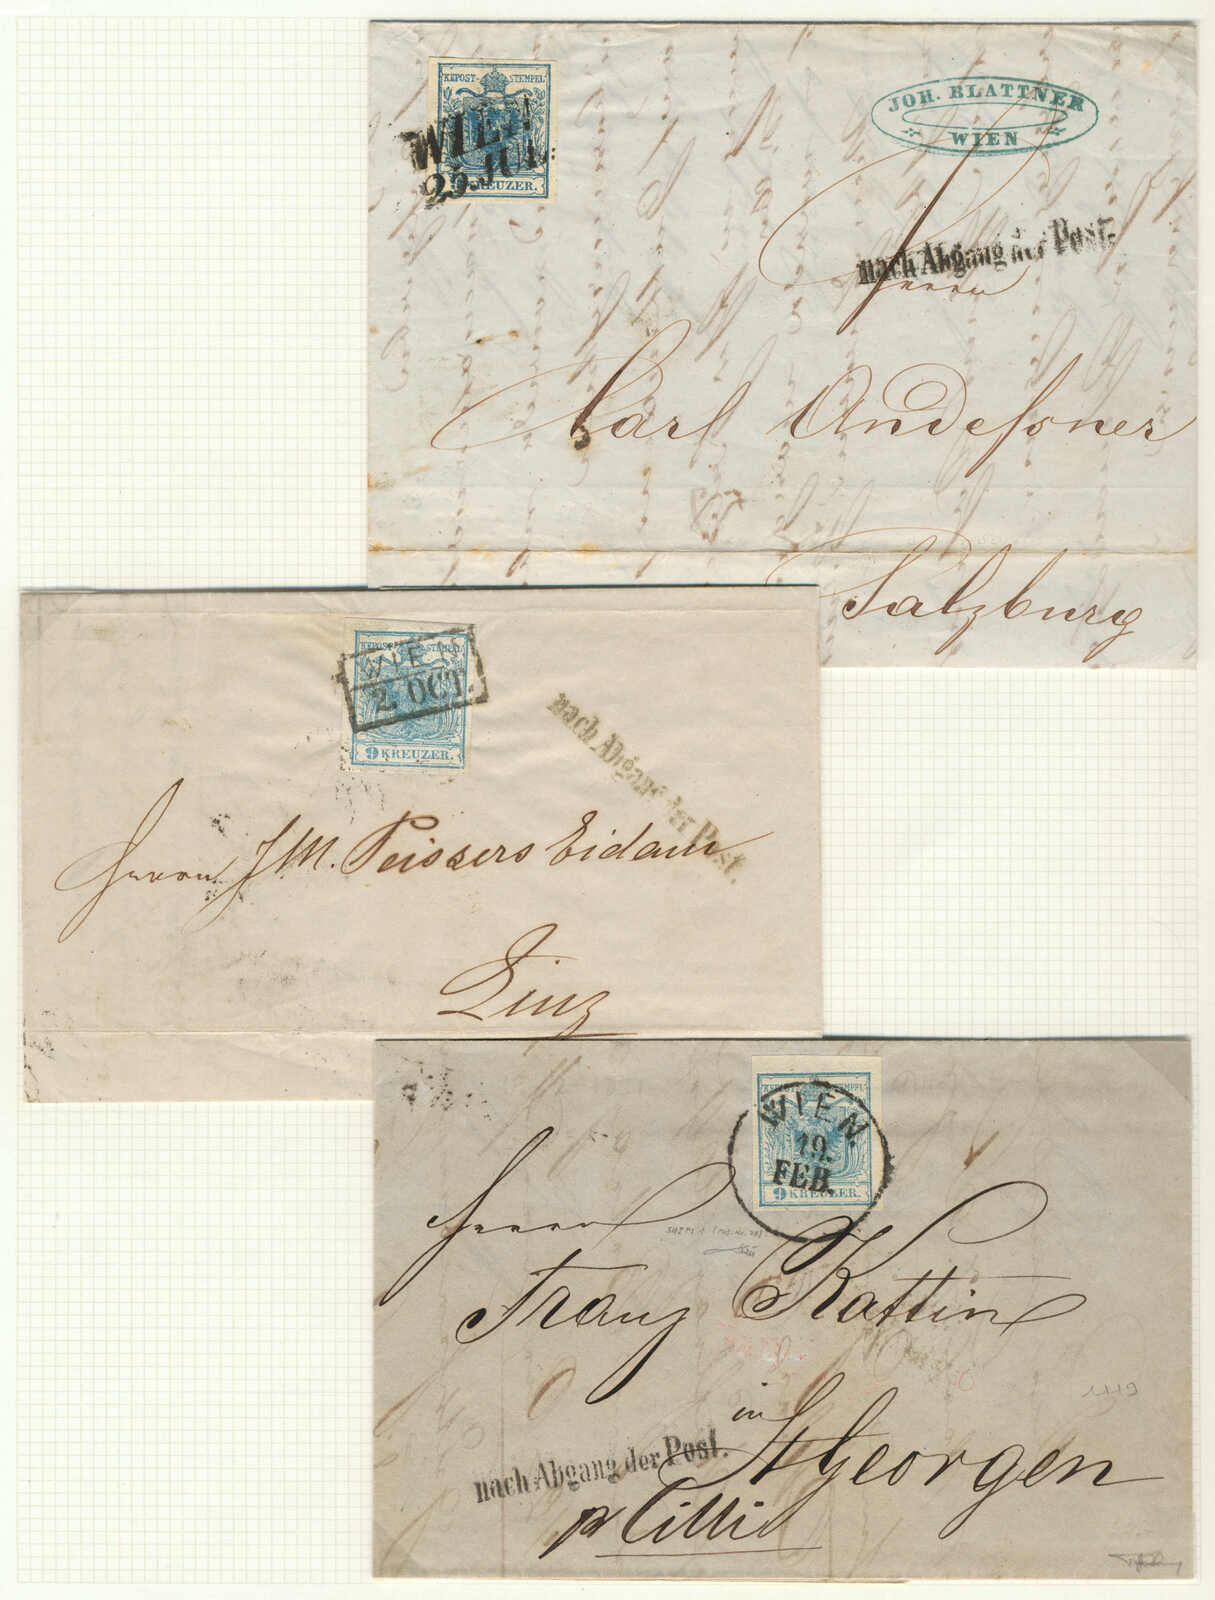 KKPOST-STEMPEL
WIEN
25. JUL.
9 KREUZER.
JOH. BLATTNER
WIEN
nach Abgang der Post.
Herrn
Carl Andeßner
Salzburg
KKPOST-STEMPEL
WIEN
2. OCT.
9 KREUZER.
nach Abgang der Post.
Herrn J. M. Peissers Eidam
Linz
KKPOST-STEMPEL
WIEN.
19.
FEB.
9 KREUZER.
Herrn
Franz Kattin
in
St Georgen
nach Abgang der Post.
pr Cilli